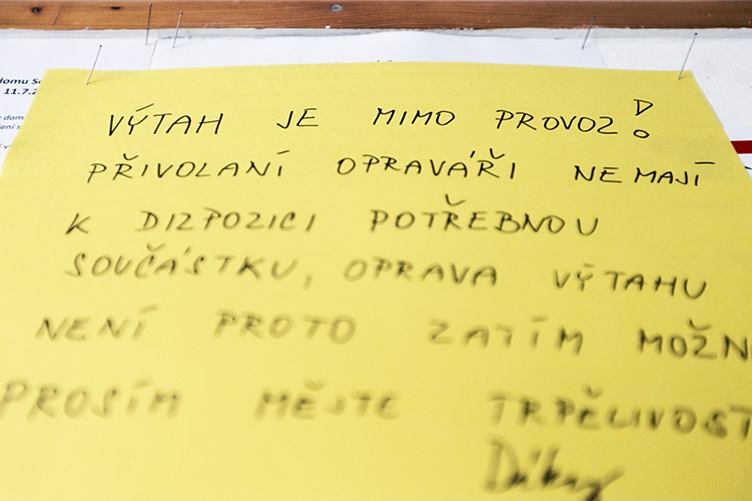 VÝTAH JE MIMO PROVOZ!
PŘIVOLANÍ OPRAVÁŘI NEMAJÍ
K DIZPOZICI POTŘEBNOU
SOUČÁSTKU, OPRAVA VÝTAHU
NENÍ PROTO ZATÍM MOŽN
PROSÍM MĚJTE TRPĚLIVOST